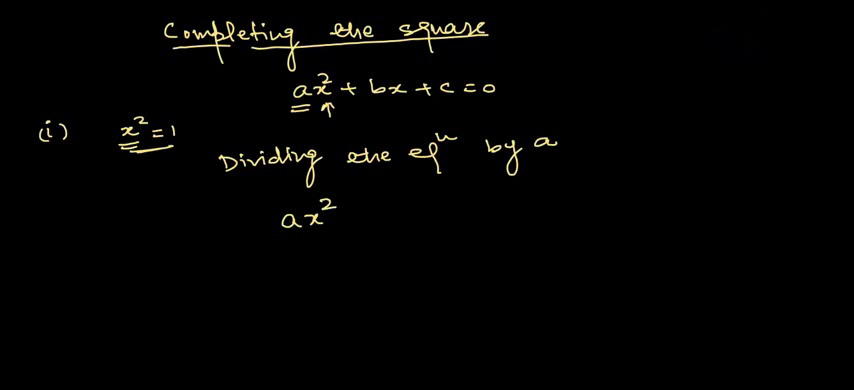 Completing the square
ax² + bx + c = 0
(i) x² = 1
Dividing the eqⁿ by a
ax²